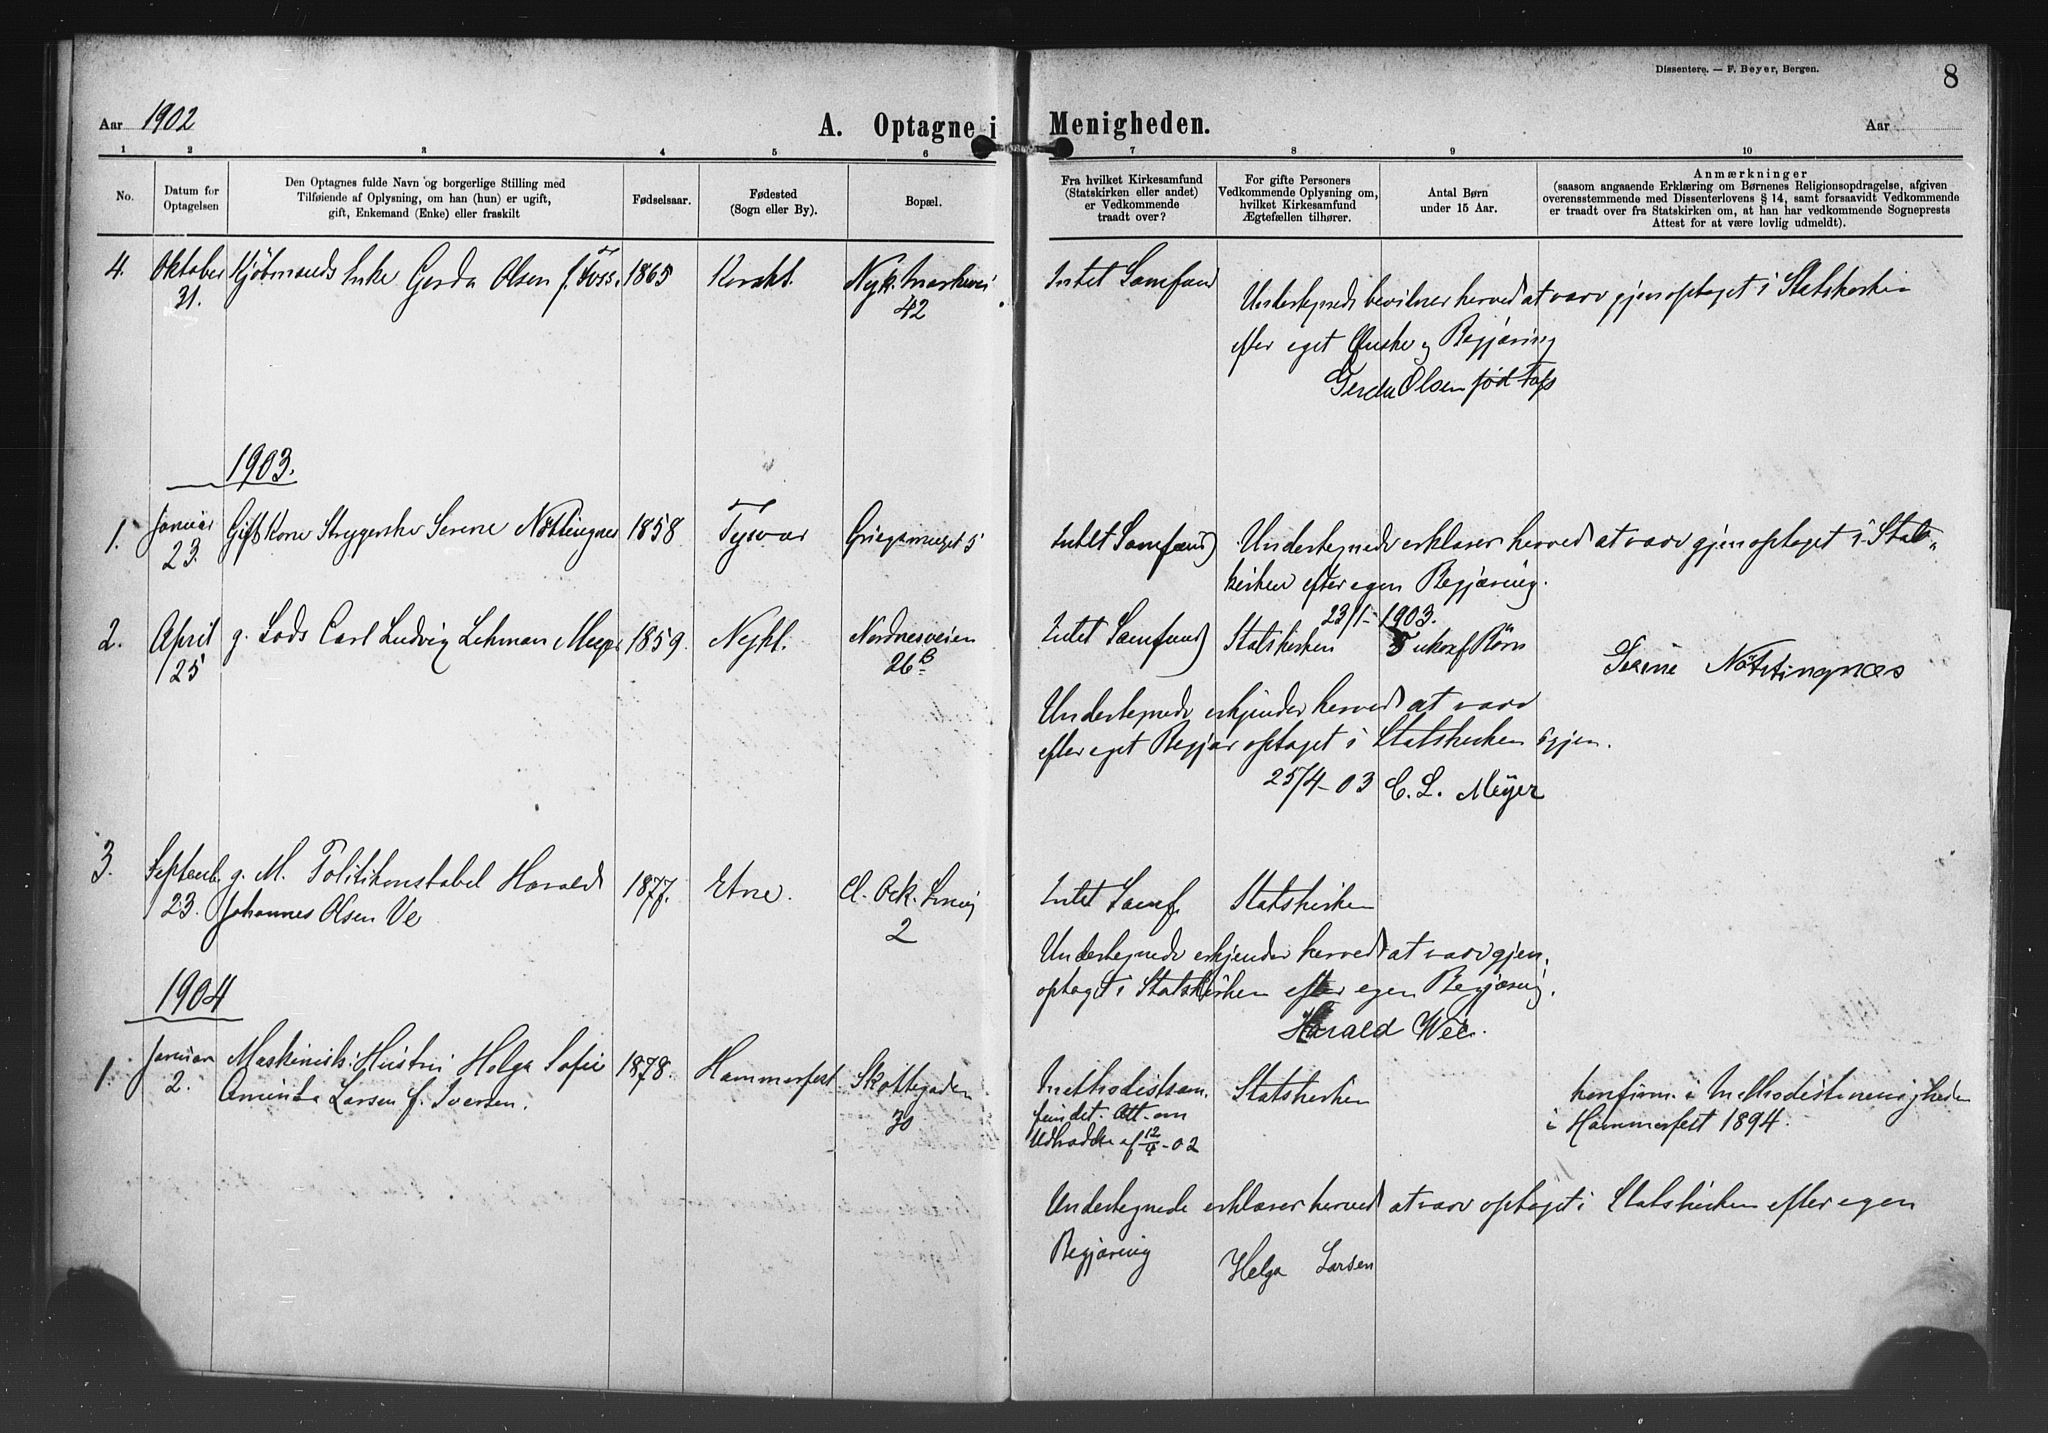 Dissentere. — F. Beyer, Bergen.
8
Aar 1902
A. Optagne i Menigheden.
Aar
1 2 3 4 5 6 7 8 9 10
No.
Datum for
Optagelsen
Den Optagnes fulde Navn og borgerlige Stilling med
Tilføiende af Oplysning, om han (hun) er ugift,
gift, Enkemand (Enke) eller fraskilt
Fødselsaar.
Fødested
(Sogn eller By).
Bopæl.
Fra hvilket Kirkesamfund
(Statskirken eller andet)
er Vedkommende
traadt over?
For gifte Personers
Vedkommende Oplysning om,
hvilket Kirkesamfund
Ægtefællen tilhører.
Antal Børn
under 15 Aar.
Anmærkninger
(saasom angaaende Erklæring om Børnenes Religionsopdragelse, afgiven
overensstemmende med Dissenterlovens § 14, samt forsaavidt Vedkommende
er traadt over fra Statskirken om, at han har vedkommende Sogneprests
Attest for at være lovlig udmeldt).
4. Oktober 31. Kjøbmands Enke Gerda Olsen f. Foss. 1865 Korskk. Nyk. Markevei 42
Intet Samfund
Undertegnede bevidner herved at være gjenoptaget i Statskirken
efter eget Ønske og Begjæring
Gerda Olsen fød Foss
1903.
1. Januar 23. Gift Kone Strygerske Serene Nöttingnes 1858 Tysvær Griegsmuget 5
Intet Samfund
Undertegnede erklærer herved at være gjenoptaget i Stats-
kirken efter egen Begjæring.
23/1-1903.
Serene Nöttingnæs
2. April 25 g. Lods Carl Ludvig Lehman Meyer 1859. Nykk. Nordnesveien 26B
Intet Samfund Statskirken 5 ukonf Børn
Undertegnede erkjender herved at være
efter eget Begjær optaget i Statskirken igjen.
25/4-03 C. L. Meyer
3. Septemb. 23. g. M. Politikonstabel Harald
Johannes Olsen Ve 1877. Etne. 2
Intet Samf. Statskirken
Undertegnede erkjender herved at være gjen-
optaget i Statskirken efter egen Begjæring.
Harald Wee.
1904
1. Januar 2. Maskinists Hustru Helga Sofie
Aminda Larsen f. Iversen. 1878. Hammerfest Skottegaden 30
Methodistsam-
fundet. Att. om
Udtrædelse af 12/4-02
Statskirken
Konfirm. i Methodistmenigheden
i Hammerfest 1894.
Undertegnede erklærer herved at være optaget i Statskirken efter egen
Begjæring
Helga Larsen